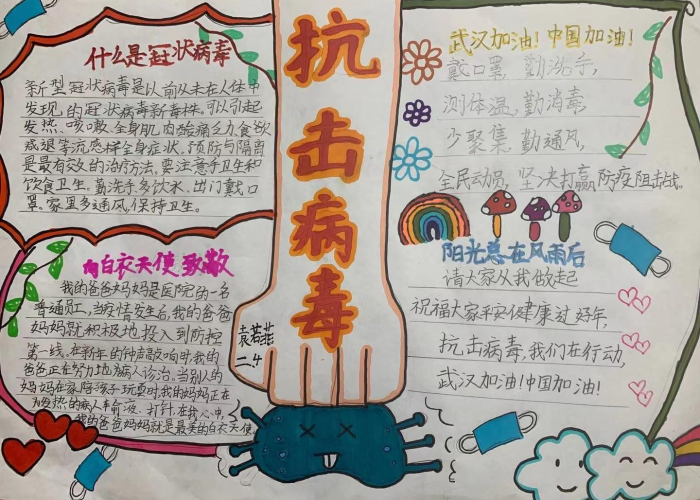 什么是冠状病毒
新型冠状病毒是以前从未在人体中
发现的冠状病毒新毒株。可以引起
发热、咳嗽、全身肌肉酸痛乏力、食欲
减退等流感样全身症状。预防与隔离
是最有效的治疗法。要注意手卫生和
饮食卫生。勤洗手多饮水、出门戴口
罩。家里多通风,保持卫生。
向白衣天使致敬
我的爸爸妈妈是医院的一名
普通员工,当疫情发生后,我的爸爸
妈妈就积极地投入到防控
第一线。在新年的钟声敲响时,我的
爸爸正在努力地为病人诊治。当别人的
妈妈在家陪孩子玩耍时,我的妈妈正在
为发热的病人输液、打针,在我心中,
我的爸爸妈妈就是最美的白衣天使
抗击病毒
袁若菲
二.4
武汉加油!中国加油!
戴口罩,勤洗手,
测体温,勤消毒,
少聚集,勤通风,
全民动员,坚决打赢防疫阻击战。
阳光总在风雨后
请大家从我做起
祝福大家平安健康过好年,
抗击病毒,我们在行动,
武汉加油!中国加油!